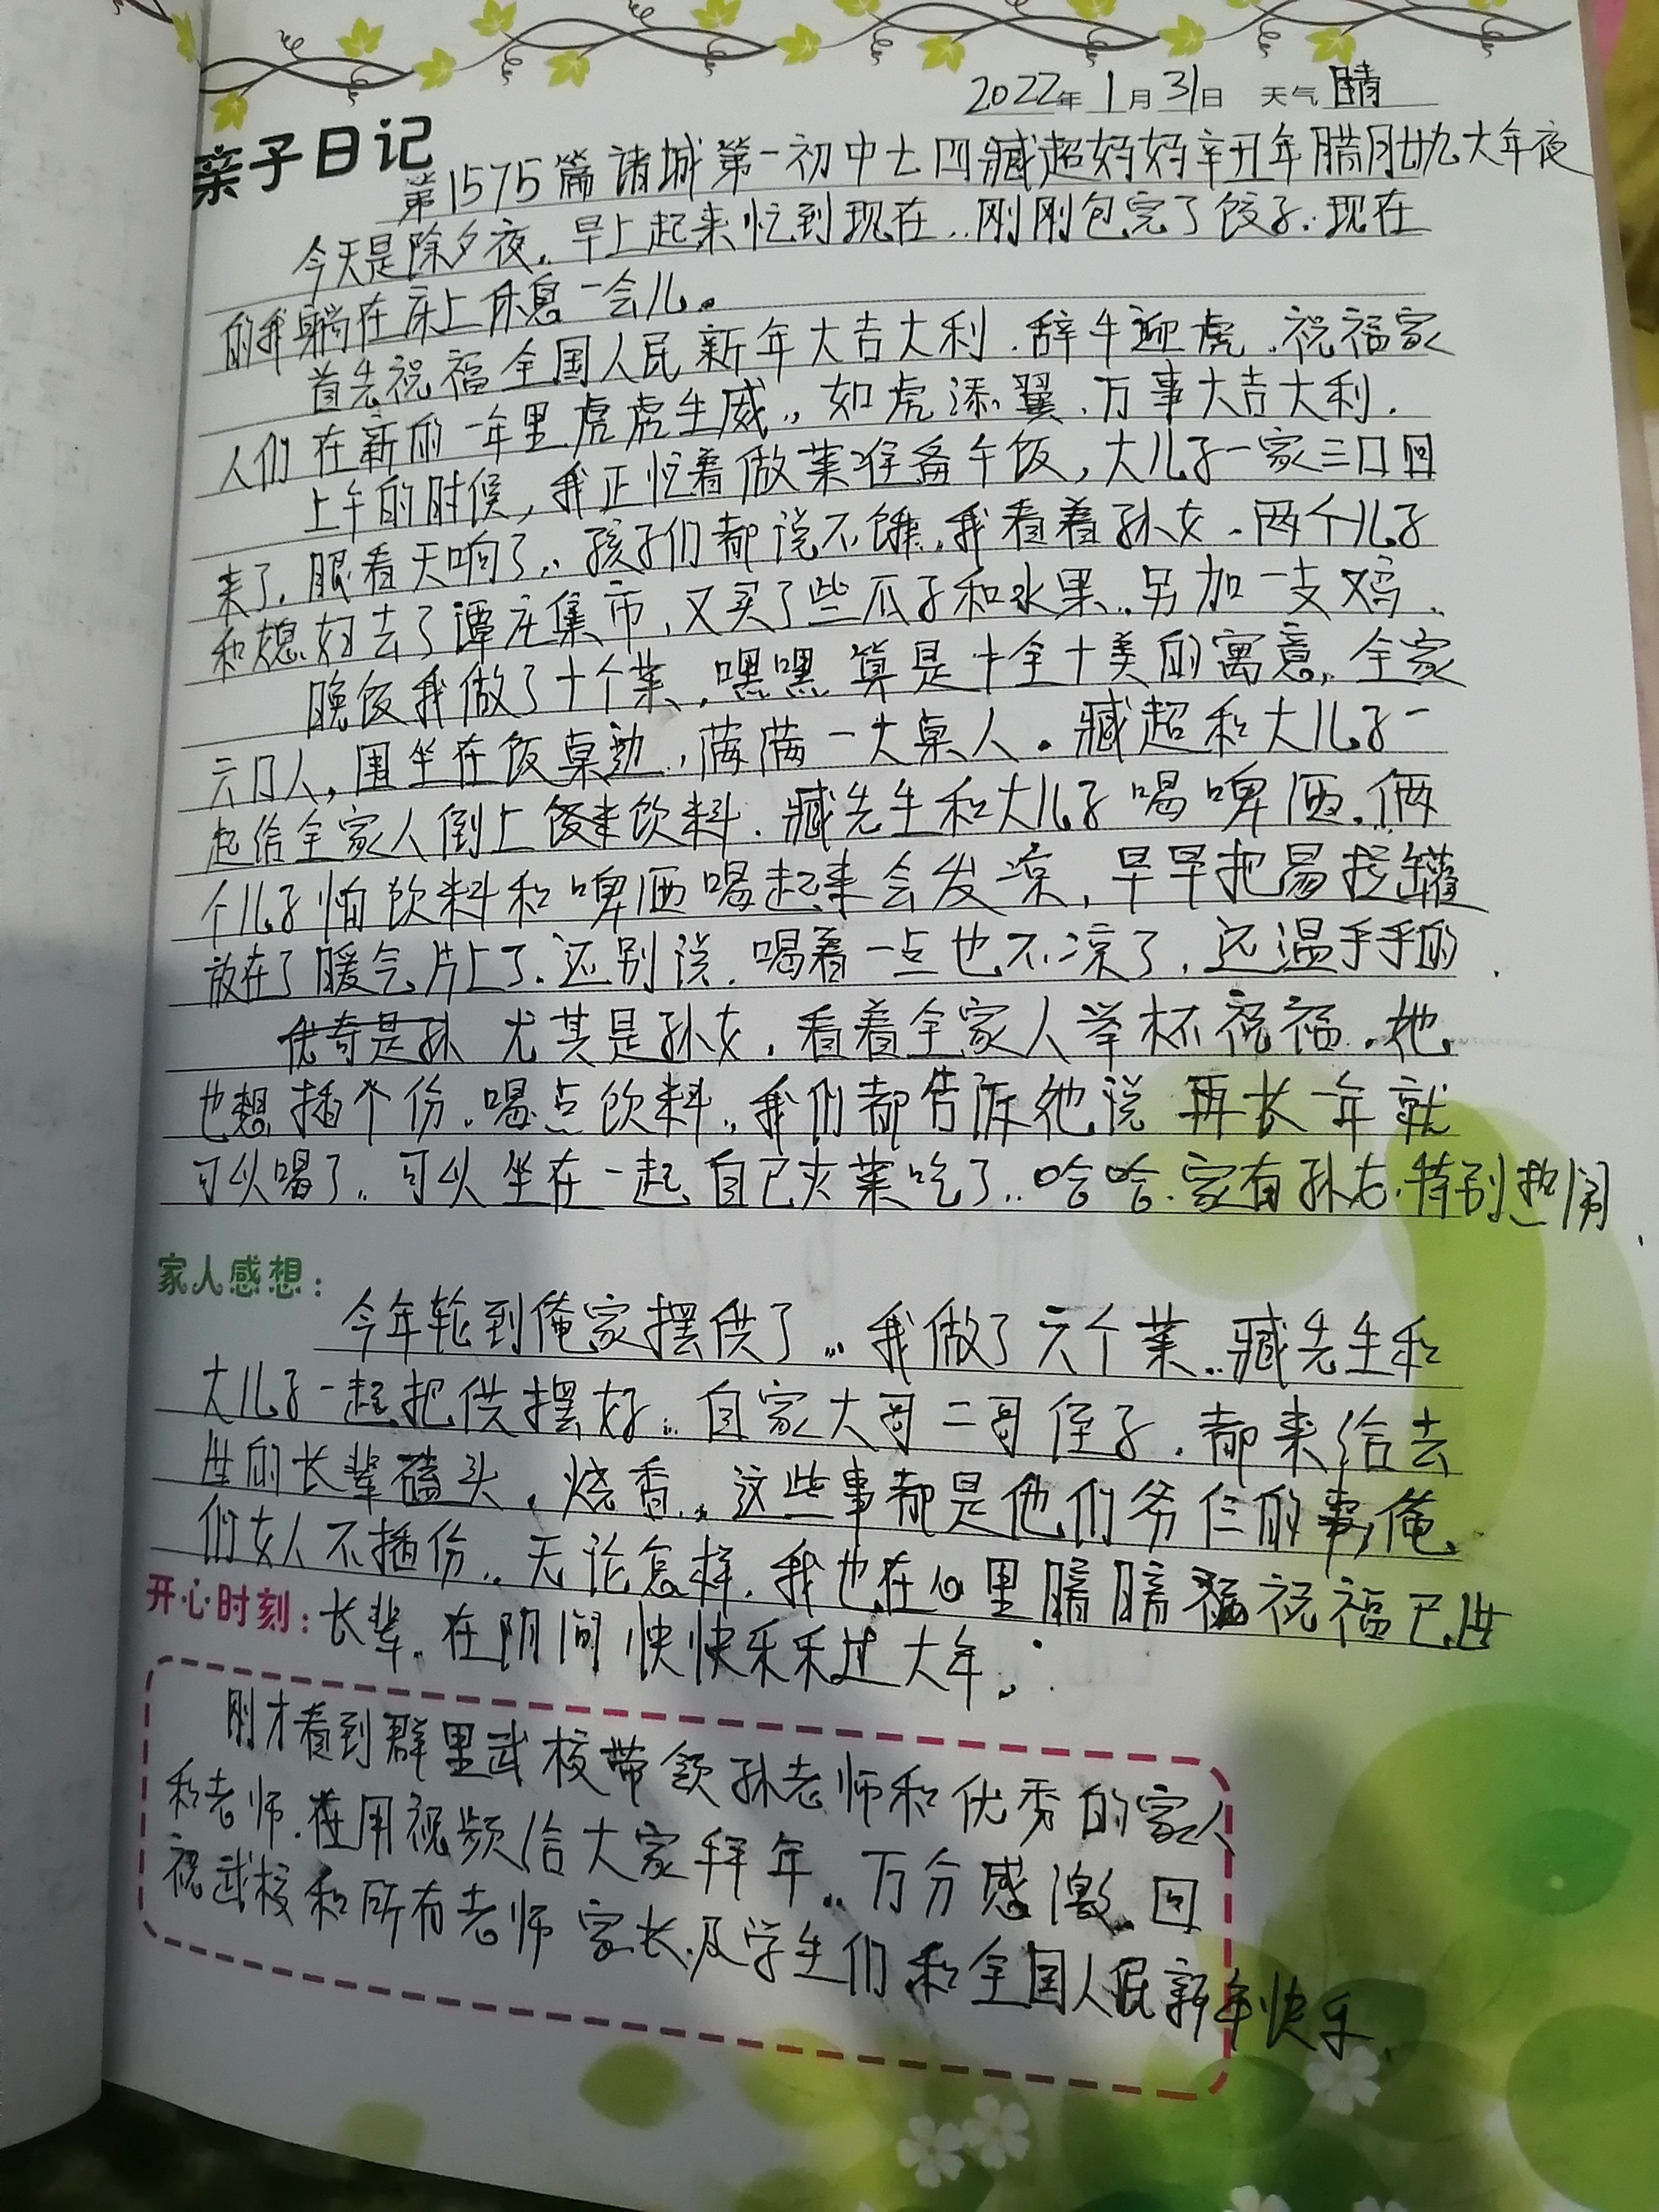 2022年 1月31日 天气 晴
亲子日记
第1575篇 诸城第一初中七四臧超妈妈辛丑年腊月廿九大年夜
今天是除夕夜,,早上起来忙到现在,,刚刚包完了饺子,现在
的我躺在床上休息一会儿。
首先祝福全国人民新年大吉大利,辞牛迎虎,祝福家
人们在新的一年里虎虎生威,,如虎添翼,万事大吉大利,
上午的时候,我正忙着做菜准备午饭,大儿子一家三口回
来了,眼看天响了,,孩子们都说不饿,我看着孙女,两个儿子
和媳妇去了谭庄集市,又买了些瓜子和水果,,另加一支鸡,
晚饭我做了十个菜,嘿嘿算是十全十美的寓意,全家
六口人,围坐在饭桌边,,满满一大桌人。臧超和大儿子一
起给全家人倒上饮料,臧先生和大儿子喝啤酒,俩
个儿子怕饮料和啤酒喝起来会发凉,早早把易拉罐
放在了暖气片上了,还别说,喝着一点也不凉了,还温乎乎的,
尤其是孙女,看着全家人举杯祝福,她
也想插个份,喝点饮料,,我们都告诉他说再长一年就
可以喝了,,可以坐在一起自己夹菜吃了,,哈哈,家有孙女,特别热闹,
家人感想:
今年轮到俺家摆供了,,,我做了六个菜,,臧先生和
大儿子一起把供摆好,,自家大哥二哥侄子,都来给去
世的长辈磕头,烧香,,这些事都是他们爷仨的事,俺
们女人不插份,,无论怎样,我也在心里腤腤祝福已世
开心时刻:长辈,在阴间快快乐乐过大年。
刚才看到群里武校带领孙老师和优秀的家人
和老师,在用视频给大家拜年,,万分感激,回
祝武校和所有老师家长及学生们和全国人民新年快乐,